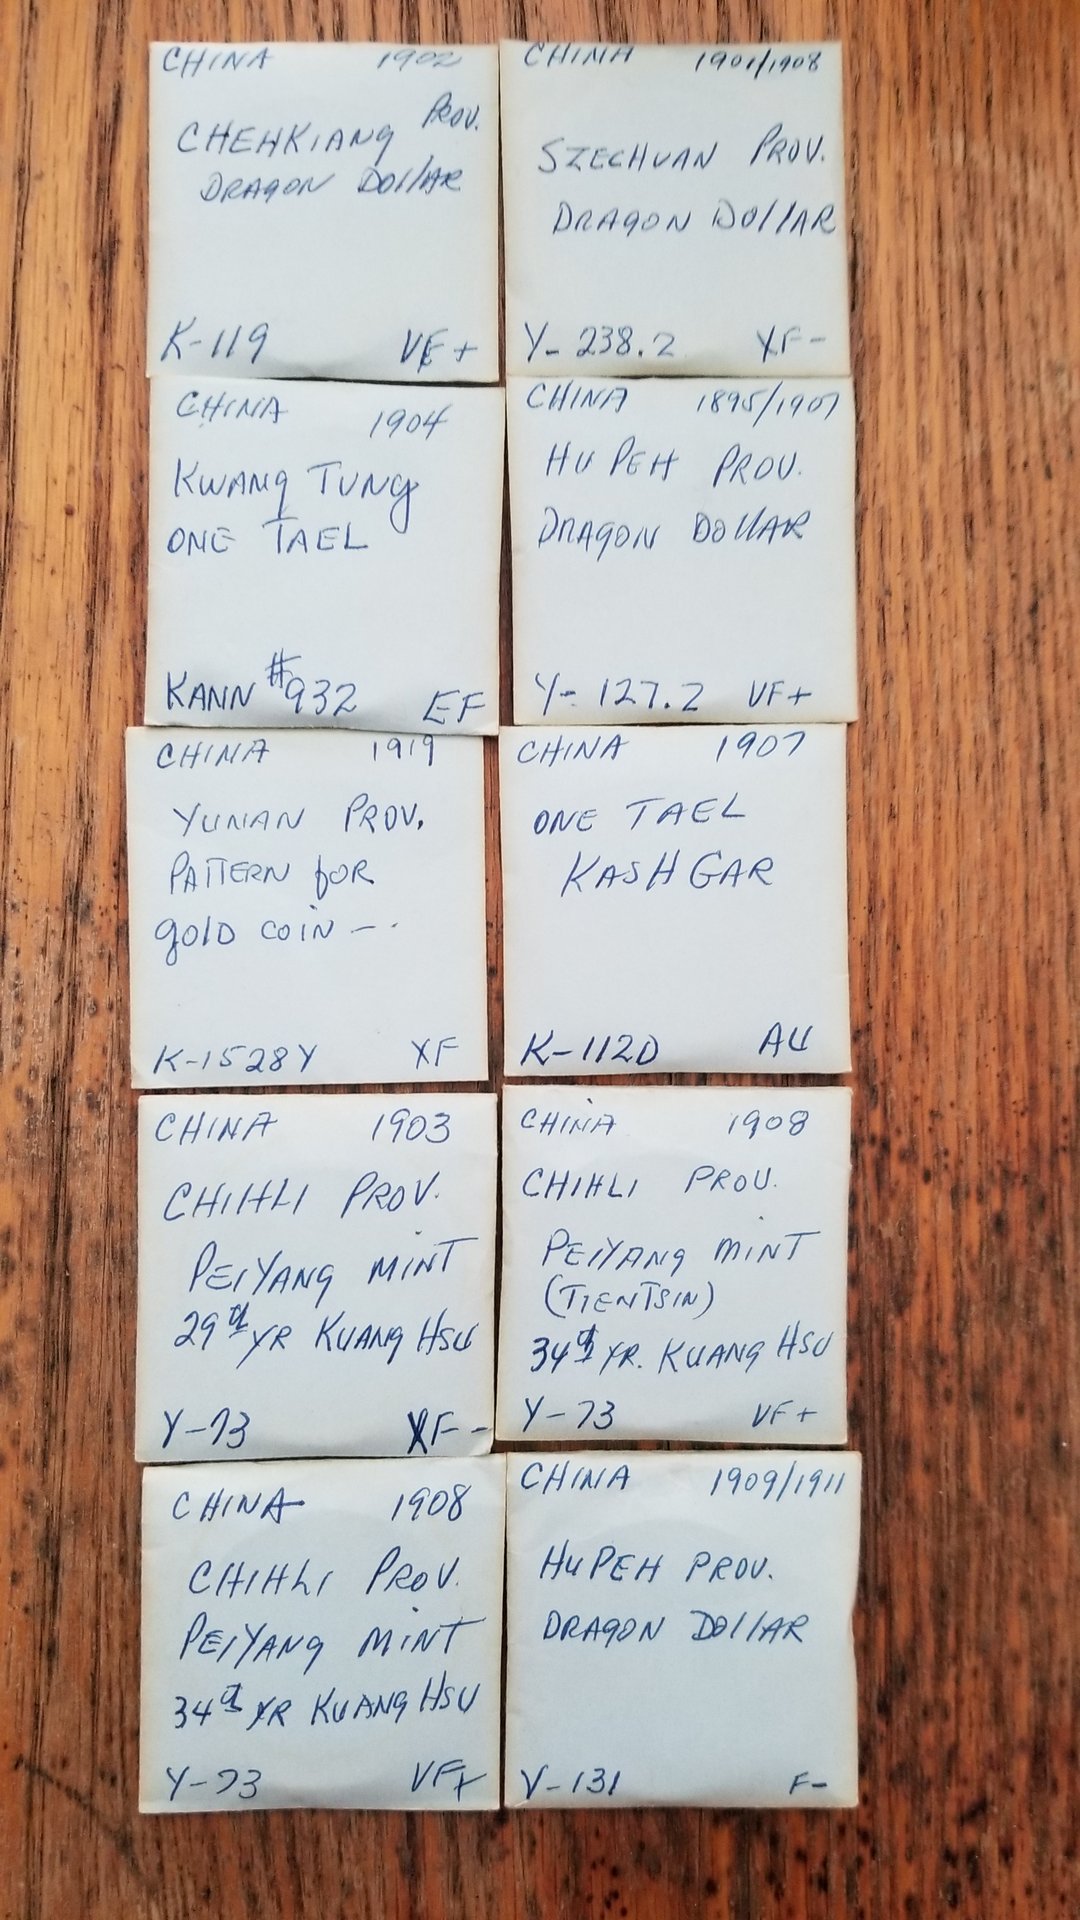 CHINA 1902
CHEHKIANG PROV.
DRAGON DOllAR
K-119 VF+
CHINA 1901/1908
SZECHUAN PROV.
DRAGON DOllAR
Y-238.2 XF-
CHINA 1904
KWANG TUNG
ONE TAEL
KANN #932 EF
CHINA 1895/1907
HU PEH PROV.
DRAGON DOllAR
Y-127.2 VF+
CHINA 1919
YUNAN PROV.
PATTERN fOR
gOlD COiN --
K-1528Y XF
CHINA 1907
ONE TAEL
KASHGAR
K-1120 AU
CHINA 1903
CHIHLI PROV.
PEIYANG MiNT
29th YR KUANG HSU
Y-73 XF-
CHINA 1908
CHIHLI PROV.
PEIYANG MiNT
(TIENTSIN)
34th YR. KUANG HSU
Y-73 VF+
CHINA 1908
CHIHLI PROV.
PEIYANG MiNT
34th YR KUANG HSU
Y-73 VF+
CHINA 1909/1911
HUPEH PROV.
DRAGON DOllAR
Y-131 F-